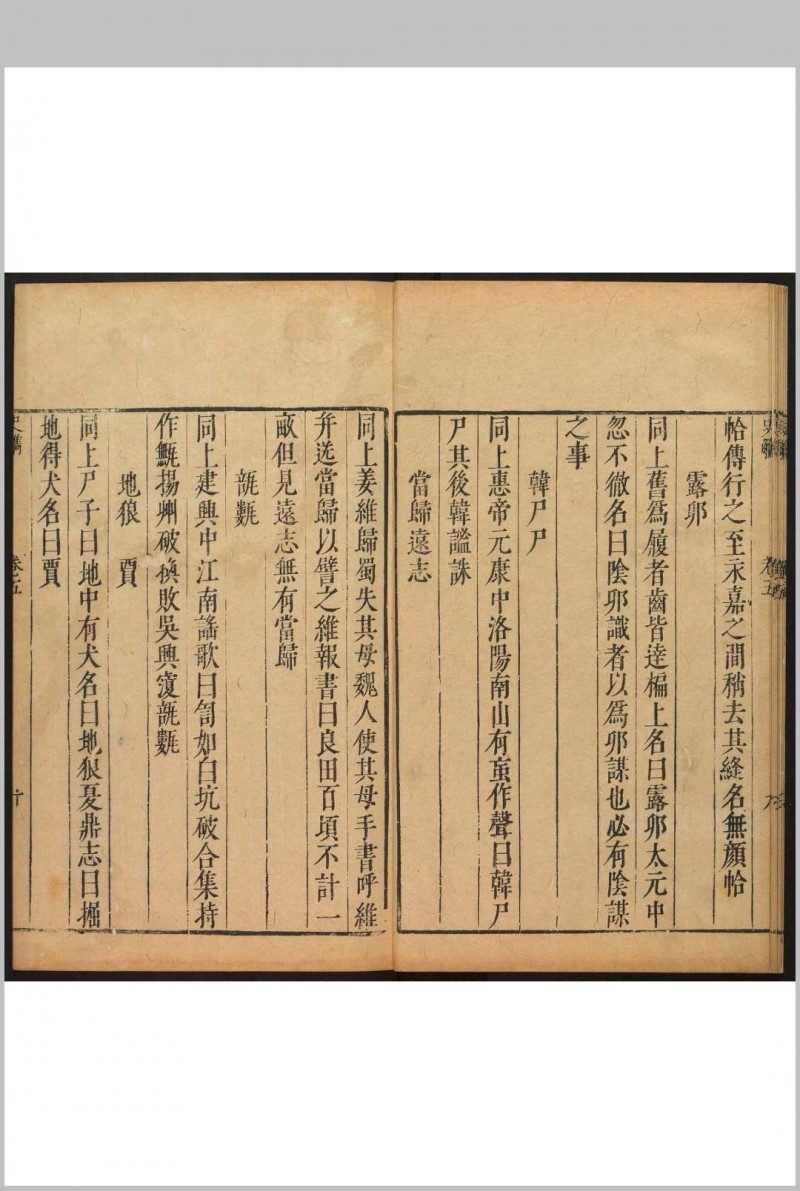 帢傳行之至永嘉之間稍去其縫名無顔帢
露卯
同上舊爲履者齒皆逹楄上名曰露卯太元中
忽不徹名曰陰卯識者以爲卯謀也必有陰謀
之事
韓尸尸
同上惠帝元康中洛陽南山有䖟作聲曰韓尸
尸其後韓謐誅
當歸遠志
同上姜維歸蜀失其母魏人使其母手書呼維
并送當歸以譬之維報書曰良田百頃不計一
畝但見遠志無有當歸
瓿甊
同上建興中江南謠歌曰訇如白坑破合集持
作甒揚州破換敗吳興覆瓿甊
地狼　賈
同上尸子曰地中有犬名曰地狼夏鼎志曰掘
地得犬名曰賈
卷之五
十